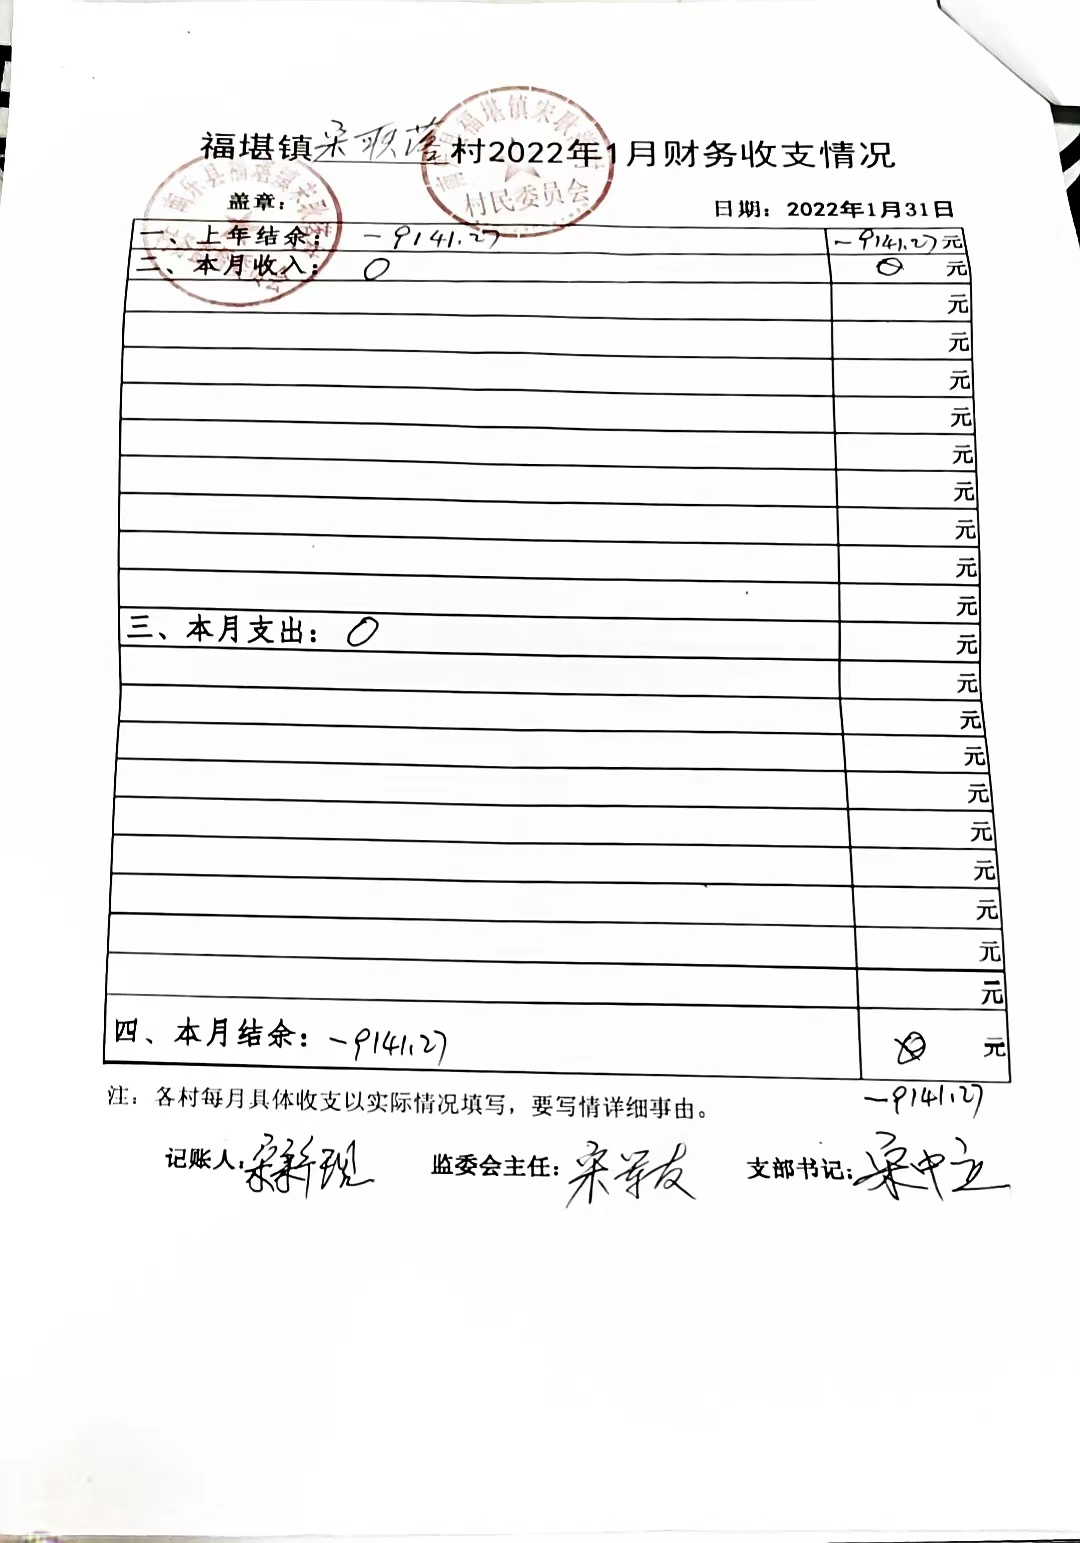 福堪镇宋耿落村2022年1月财务收支情况
村民委员会
盖章：
日期：2022年1月31日
一、上年结余： -9141.27 -9141.27元
二、本月收入： 0 0 元
元
元
元
元
元
元
元
元
元
三、本月支出： 0 元
元
元
元
元
元
元
元
元
元
四、本月结余：-9141.27 元
-9141.27
注：各村每月具体收支以实际情况填写，要写情详细事由。
记账人： 监委会主任： 支部书记：宋中立